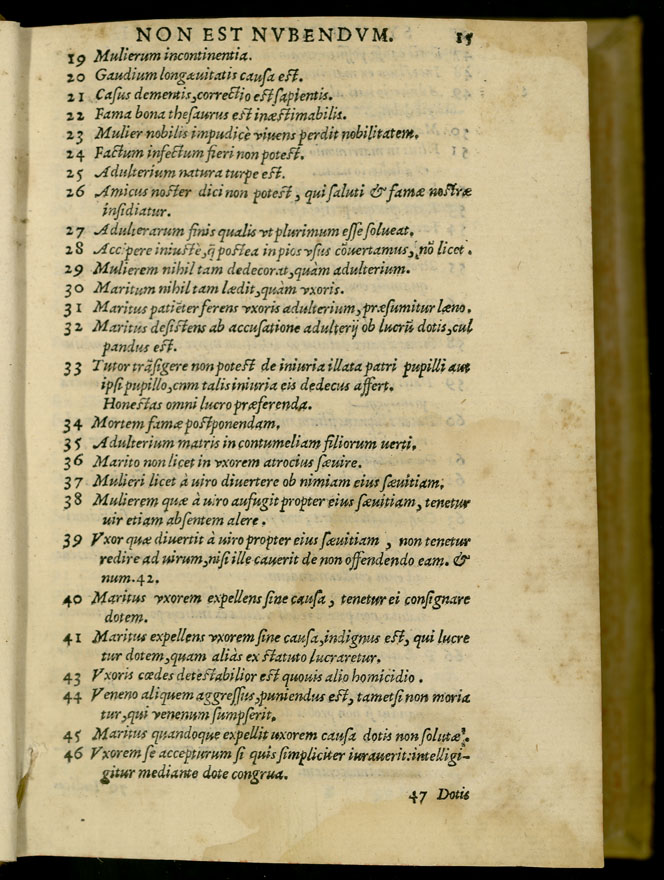 NON EST NVBENDVM. 15
19 Mulierum incontinentia.
20 Gaudium longæuitatis causa est.
21 Casus dementis, correctio est sapientis.
22 Fama bona thesaurus est inæstimabilis.
23 Mulier nobilis impudicè viuens perdit nobilitatem.
24 Factum infectum fieri non potest.
25 Adulterium natura turpe est.
26 Amicus noster dici non potest, qui saluti & famæ nostræ
insidiatur.
27 Adulterarum finis qualis vt plurimum esse soleat.
28 Accipere iniustè, q̃ postea in pios vsus cõuertamus, nõ licet.
29 Mulierem nihil tam dedecorat, quàm adulterium.
30 Maritum nihil tam lædit, quàm vxoris.
31 Maritus patiẽter ferens vxoris adulterium, præsumitur læno.
32 Maritus desistens ab accusatione adulterij ob lucrũ dotis, cul
pandus est.
33 Tutor trãsigere non potest de iniuria illata patri pupilli aut
ipsi pupillo, cnm talis iniuria eis dedecus affert.
Honestas omni lucro præferenda.
34 Mortem famæ postponendam.
35 Adulterium matris in contumeliam filiorum uerti.
36 Marito non licet in vxorem atrocius sæuire.
37 Mulieri licet à uiro diuertere ob nimiam eius sæuitiam.
38 Mulierem quæ à uiro aufugit propter eius sæuitiam, tenetur
uir etiam absentem alere.
39 Vxor quæ diuertit à uiro propter eius sæuitiam, non tenetur
redire ad uirum, nisi ille cauerit de non offendendo eam. &
num. 42.
40 Maritus vxorem expellens sine causa, tenetur ei consignare
dotem.
41 Maritus expellens vxorem sine causa, indignus est, qui lucre
tur dotem, quam aliàs ex statuto lucraretur.
43 Vxoris cædes detestabilior est quouis alio homicidio.
44 Veneno aliquem aggressus, puniendus est, tametsi non moria
tur, qui uenenum sumpserit.
45 Maritus quandoque expellit uxorem causa dotis non solutæ.
46 Vxorem se accepturum si quis simpliciter iurauerit: intelligi-
gitur mediante dote congrua.
47 Dotis